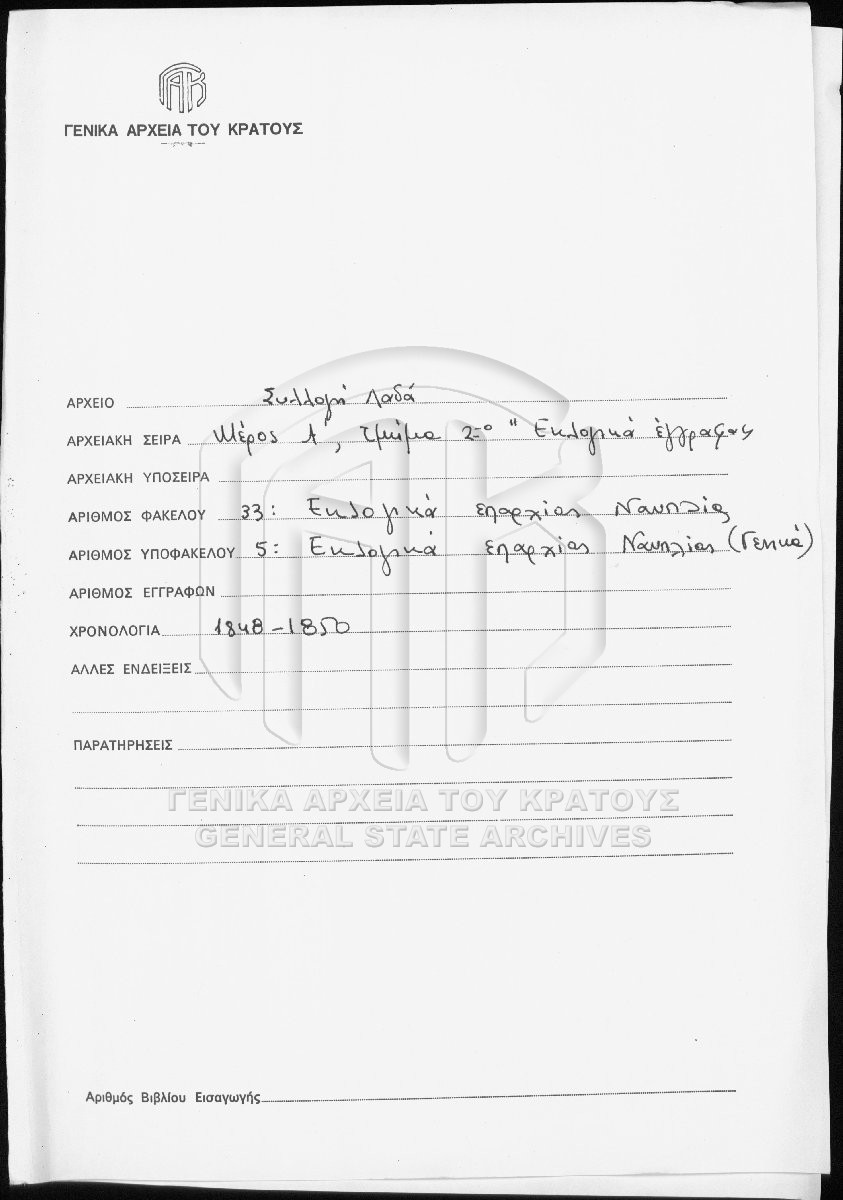 ΓΑΚ
ΓΕΝΙΚΑ ΑΡΧΕΙΑ ΤΟΥ ΚΡΑΤΟΥΣ
ΑΡΧΕΙΟ Συλλογή Λαδά
ΑΡΧΕΙΑΚΗ ΣΕΙΡΑ Μέρος Α', Τμήμα 2ο " Εκλογικά έγγραφα"
ΑΡΧΕΙΑΚΗ ΥΠΟΣΕΙΡΑ
ΑΡΙΘΜΟΣ ΦΑΚΕΛΟΥ 33: Εκλογικά επαρχίας Ναυπλίας
ΑΡΙΘΜΟΣ ΥΠΟΦΑΚΕΛΟΥ 5: Εκλογικά επαρχίας Ναυπλίας (Γενικά)
ΑΡΙΘΜΟΣ ΕΓΓΡΑΦΩΝ
ΧΡΟΝΟΛΟΓΙΑ 1848-1850
ΑΛΛΕΣ ΕΝΔΕΙΞΕΙΣ
ΠΑΡΑΤΗΡΗΣΕΙΣ
ΓΕΝΙΚΑ ΑΡΧΕΙΑ ΤΟΥ ΚΡΑΤΟΥΣ
GENERAL STATE ARCHIVES
Αριθμός Βιβλίου Εισαγωγής